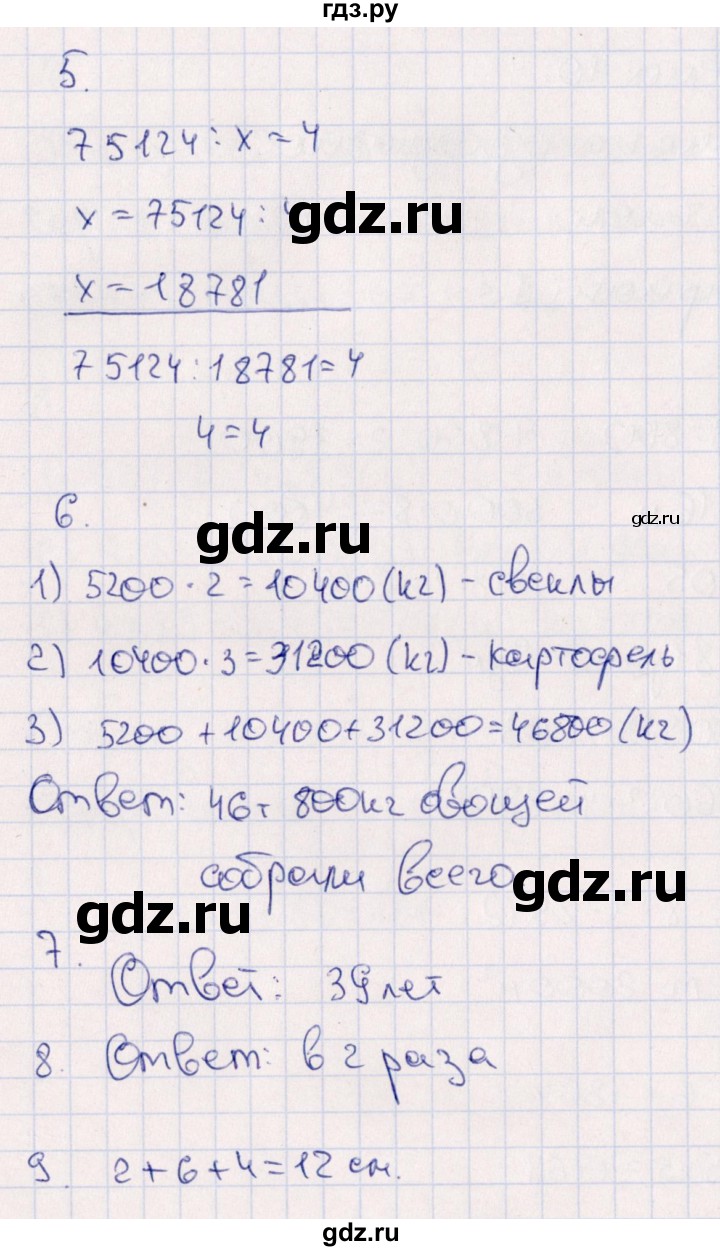 гдз.ру
5.
75124 : x = 4
x = 75124 : 4
gdz.ru
x = 18781
75124 : 18781 = 4
4 = 4
6.
gdz.ru
gdz.ru
1) 5200 · 2 = 10400 (кг) - свеклы
2) 10400 · 3 = 31200 (кг) - картофель
3) 5200 + 10400 + 31200 = 46800 (кг)
Ответ: 46т 800кг овощей
собрали всего
gdz.ru
gdz.ru
7.
Ответ: 39 лет
8. Ответ: в 2 раза
9. 2 + 6 + 4 = 12 см.
gdz.ru